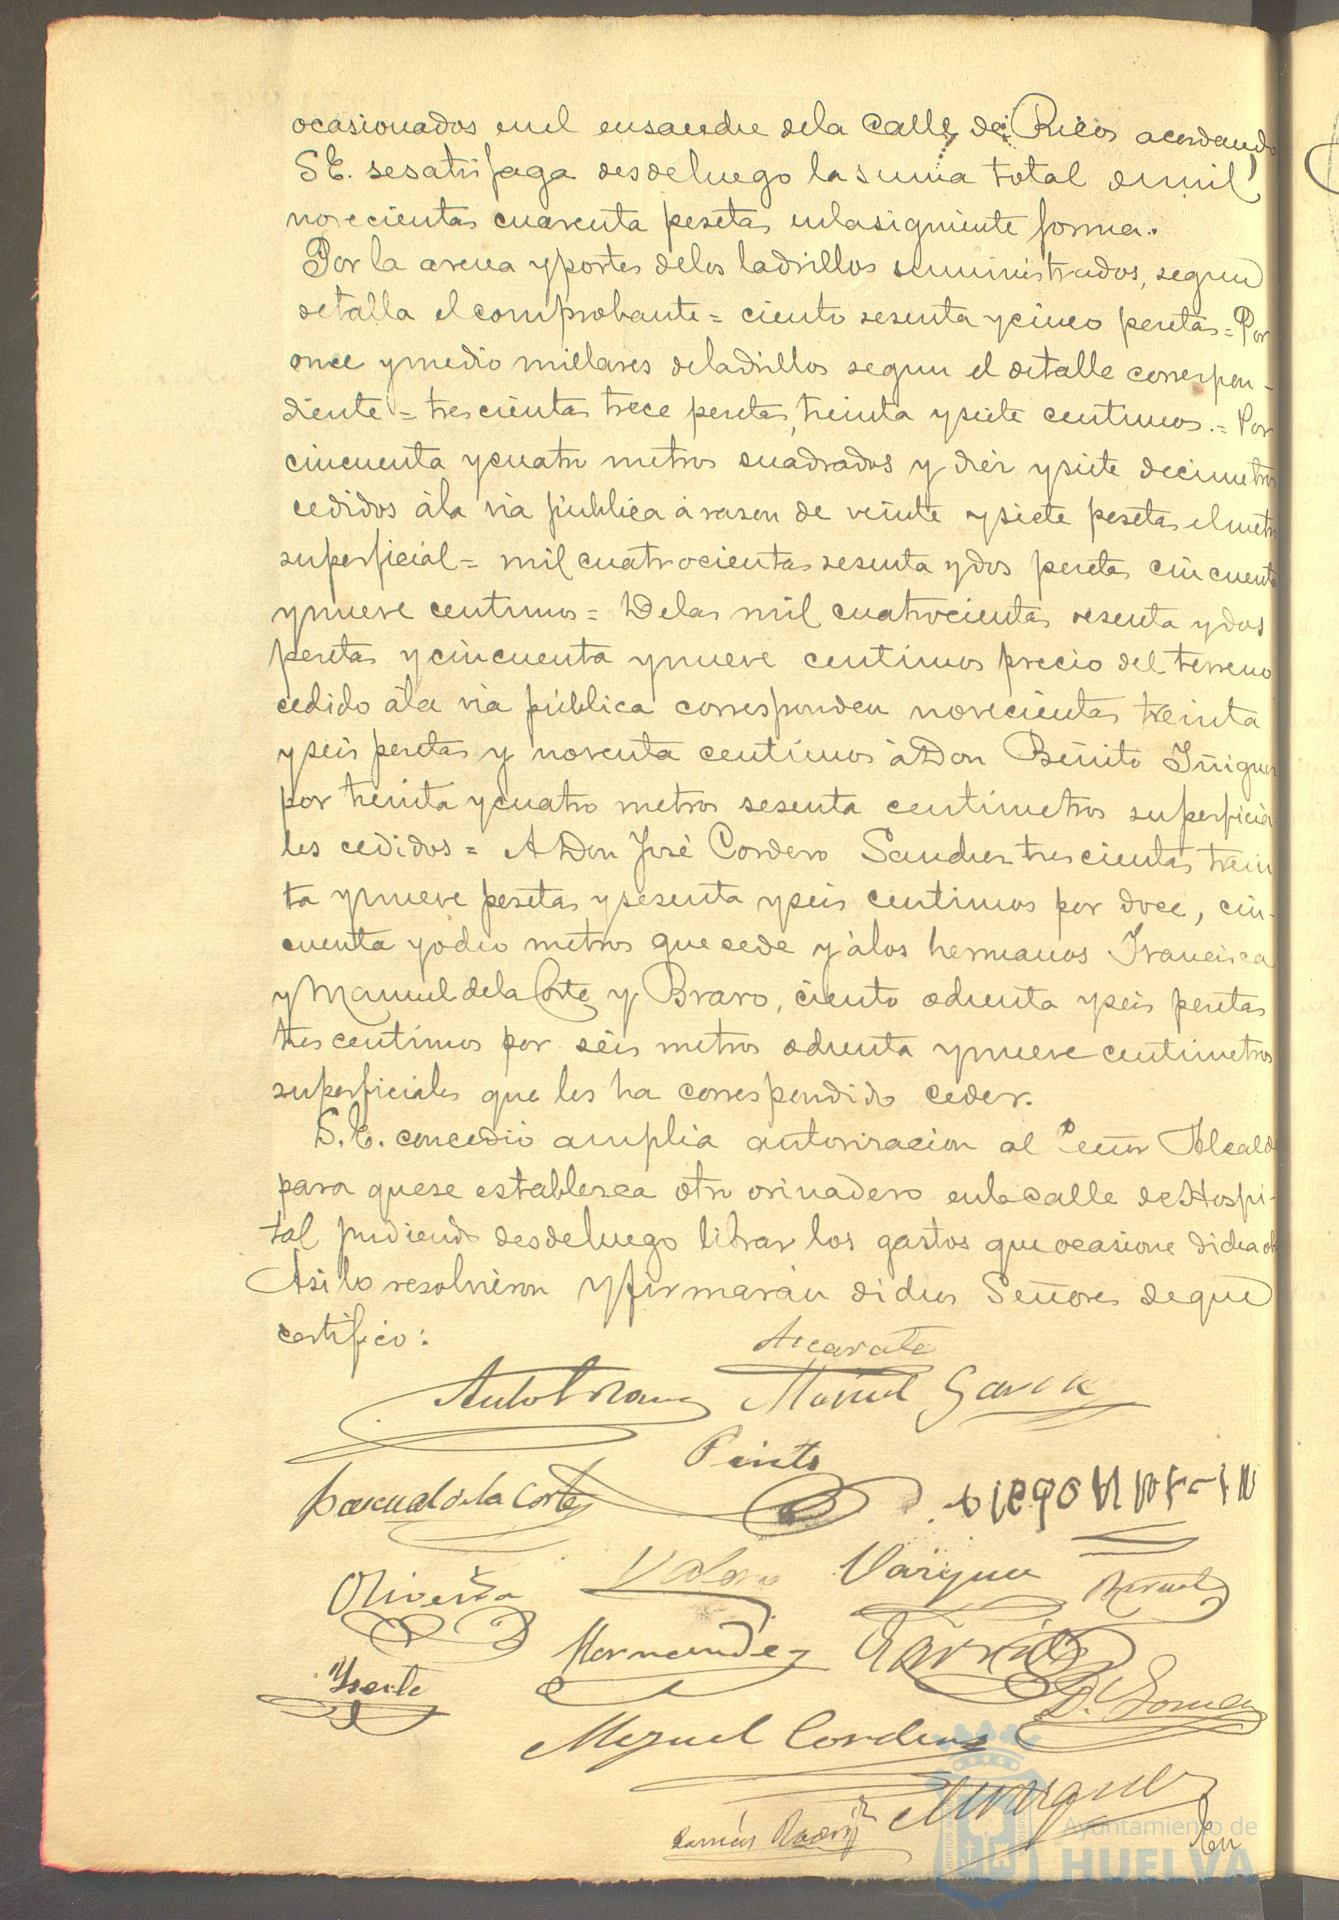 ocasionados en el ensanche de la Calle de Ricos acordando
S. E. se satisfaga desde luego la suma total de mil
novecientas cuarenta pesetas en la siguiente forma.
Por la arena y portes de los ladrillos suministrados, segun
detalla el comprobante = ciento sesenta y cinco pesetas = Por
once y medio millares de ladrillos segun el detalle correspon-
diente = trescientas trece pesetas, treinta y siete centimos. = Por
cincuenta y cuatro metros cuadrados y diez y siete decimetros
cedidos á la via pública á rason de veinte y siete pesetas el metro
superficial = mil cuatrocientas sesenta y dos pesetas cincuenta
y nueve centimos = De las mil cuatrocientas sesenta y dos
pesetas y cincuenta y nueve centimos precio del terreno
cedido á la via pública corresponden novecientas treinta
y seis pesetas y noventa centimos á Don Benito Iñiguez
por treinta y cuatro metros sesenta centimetros superficia
les cedidos = A Don José Cordero Sanchez trescientas trein
ta y nueve pesetas y sesenta y seis centimos por doce, cin-
cuenta y ocho metros que cede y á los hermanos Francisca
y Manuel de la Corte y Bravo, ciento ochenta y seis pesetas
tres centimos por seis metros ochenta y nueve centimetros
superficiales que les ha correspondido ceder.
S. E. concedió amplia autorizacion al Señor Alcalde
para que se establezca otro orinadero en la calle de Hospi-
tal pudiendo desde luego librar los gastos que ocasione dicha ob
Asi lo resolvieron y firmarán dichos Señores de que
certifico:
Azcarate
Manuel Garcia
Pinto
Pascual de la Corte
Oliveira Vazquez
Hernandez Garrido
Miguel Cordero
Marquez
En
Ayuntamiento de
HUELVA